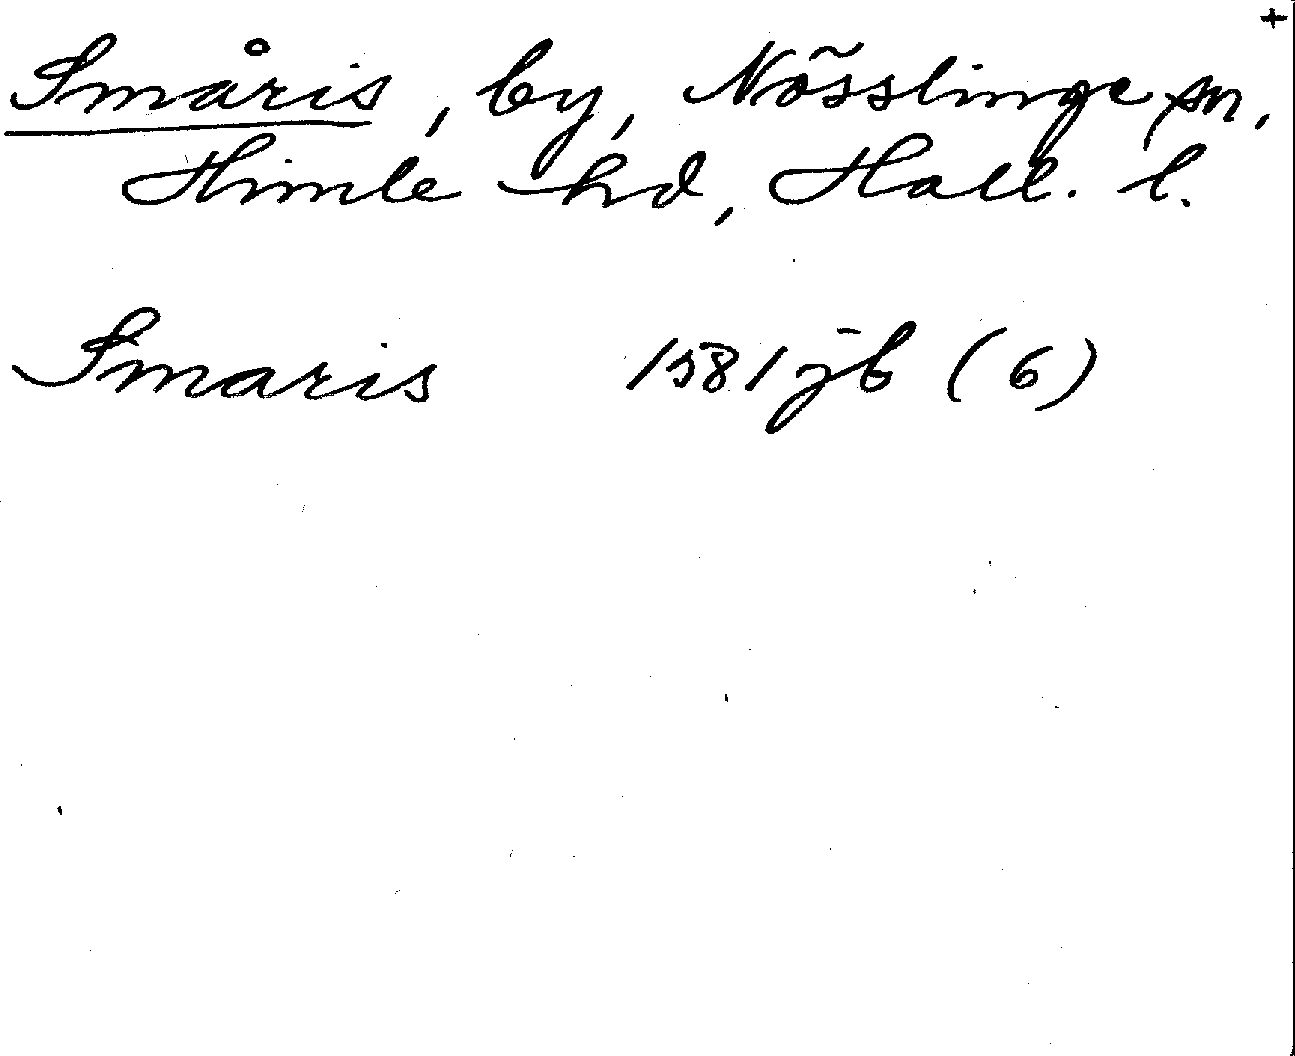 +
Småris, by, Nösslinge sn,
Himle hd, Hall. l.
Smaris 1581 jb (6)